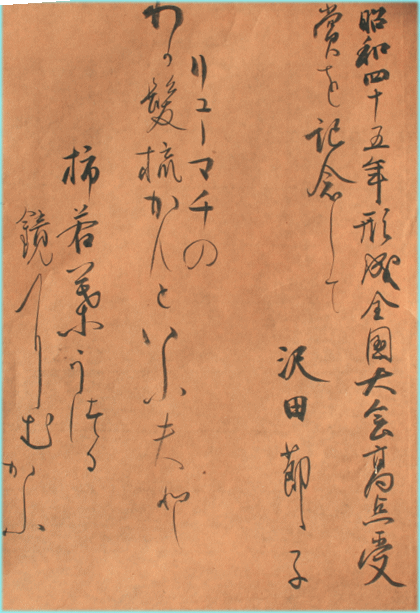 昭和四十五年形成全国大会高点受
賞を記念して
沢田節子
リューマチの
わが髪梳かんといふ夫や
柿若葉うつる
鏡にむかふ